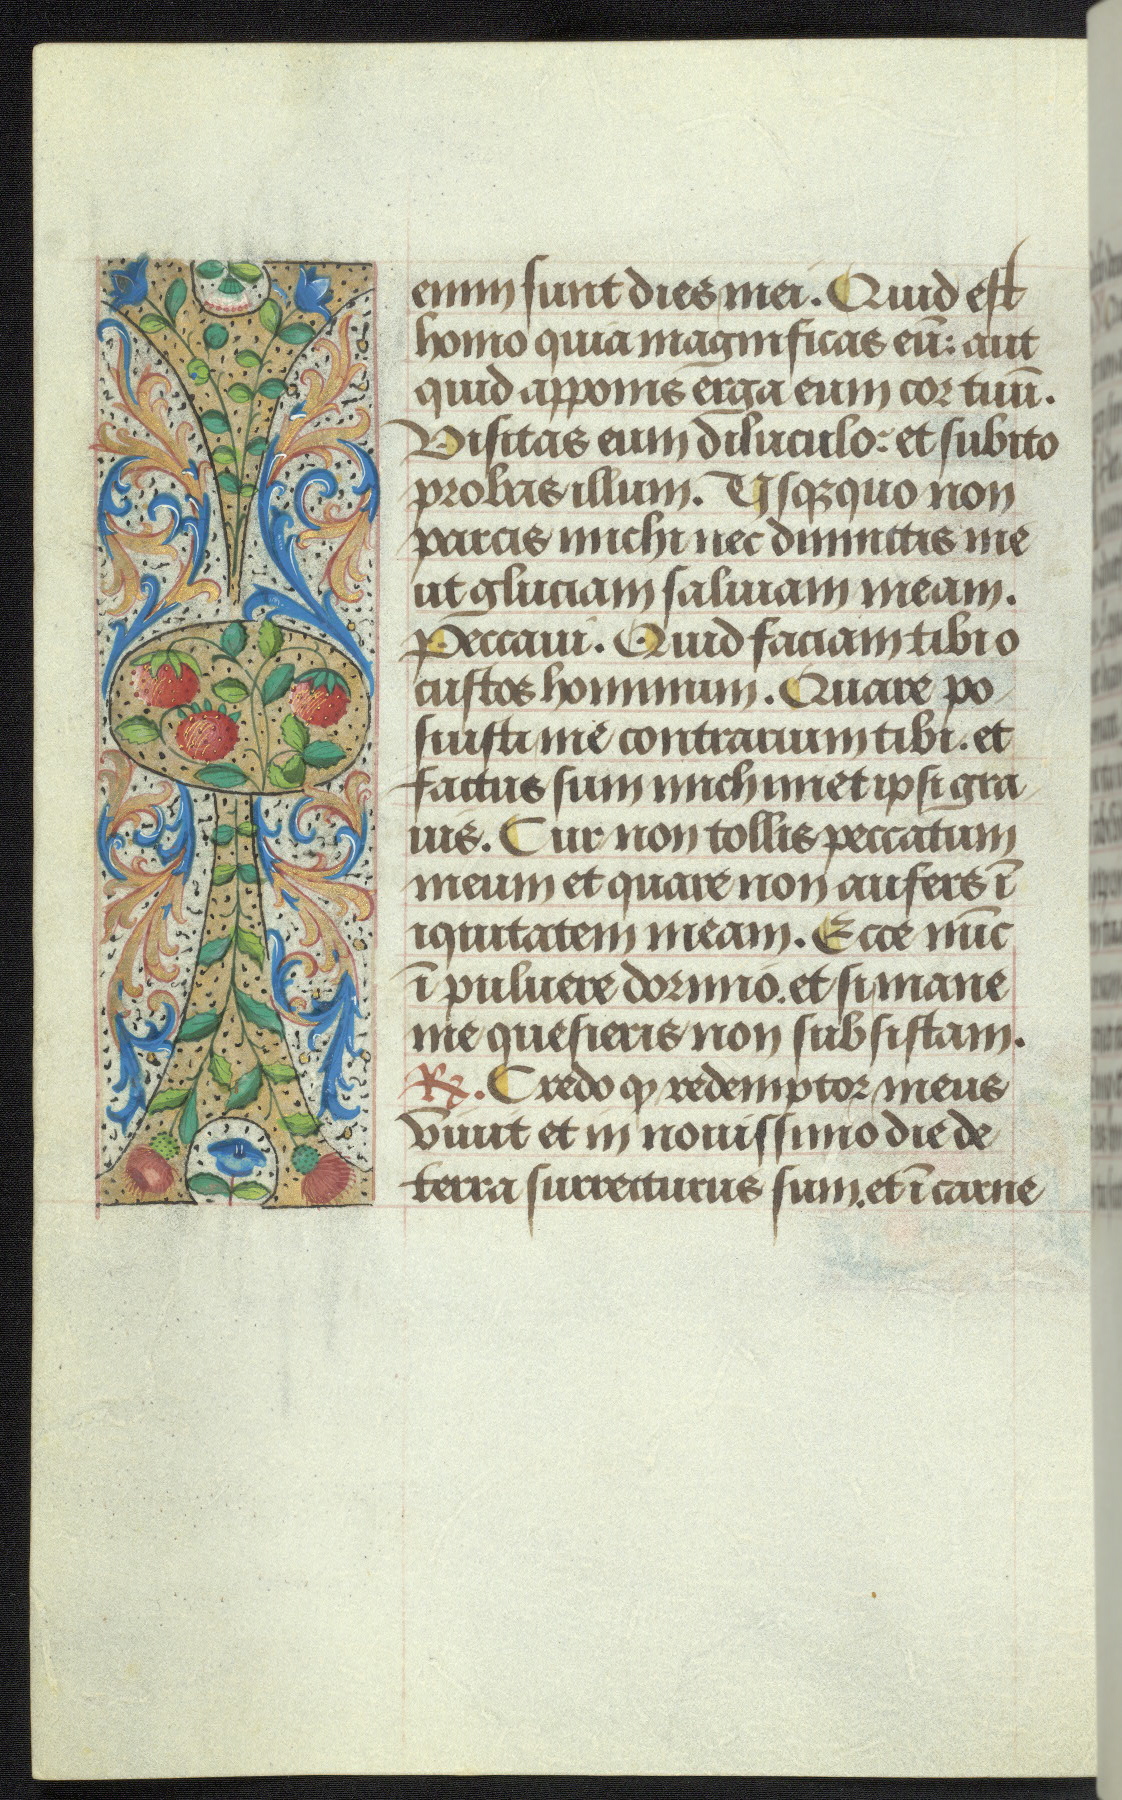 enim sunt dies mei. Quid est
homo quia magnificas eū: aut
quid apponis erga eum cor tuū.
Visitas eum diluculo: et subito
probas illum. Usqꝫquo non
parcis michi nec dimittis me
ut gluciam saliuam meam.
Peccaui. Quid faciam tibi o
custos hominum. Quare po
suisti me contrarium tibi. et
factus sum michimet ipsi gra
uis. Cur non tollis peccatum
meum et quare non aufers ī
iquitatem meam. Ecce nūc
ī puluere dormio. et si mane
me quesieris non subsistam.
℞. Credo ꝙ redemptor meus
viuit et in nouissimo die de
terra surrecturus sum. et ī carne